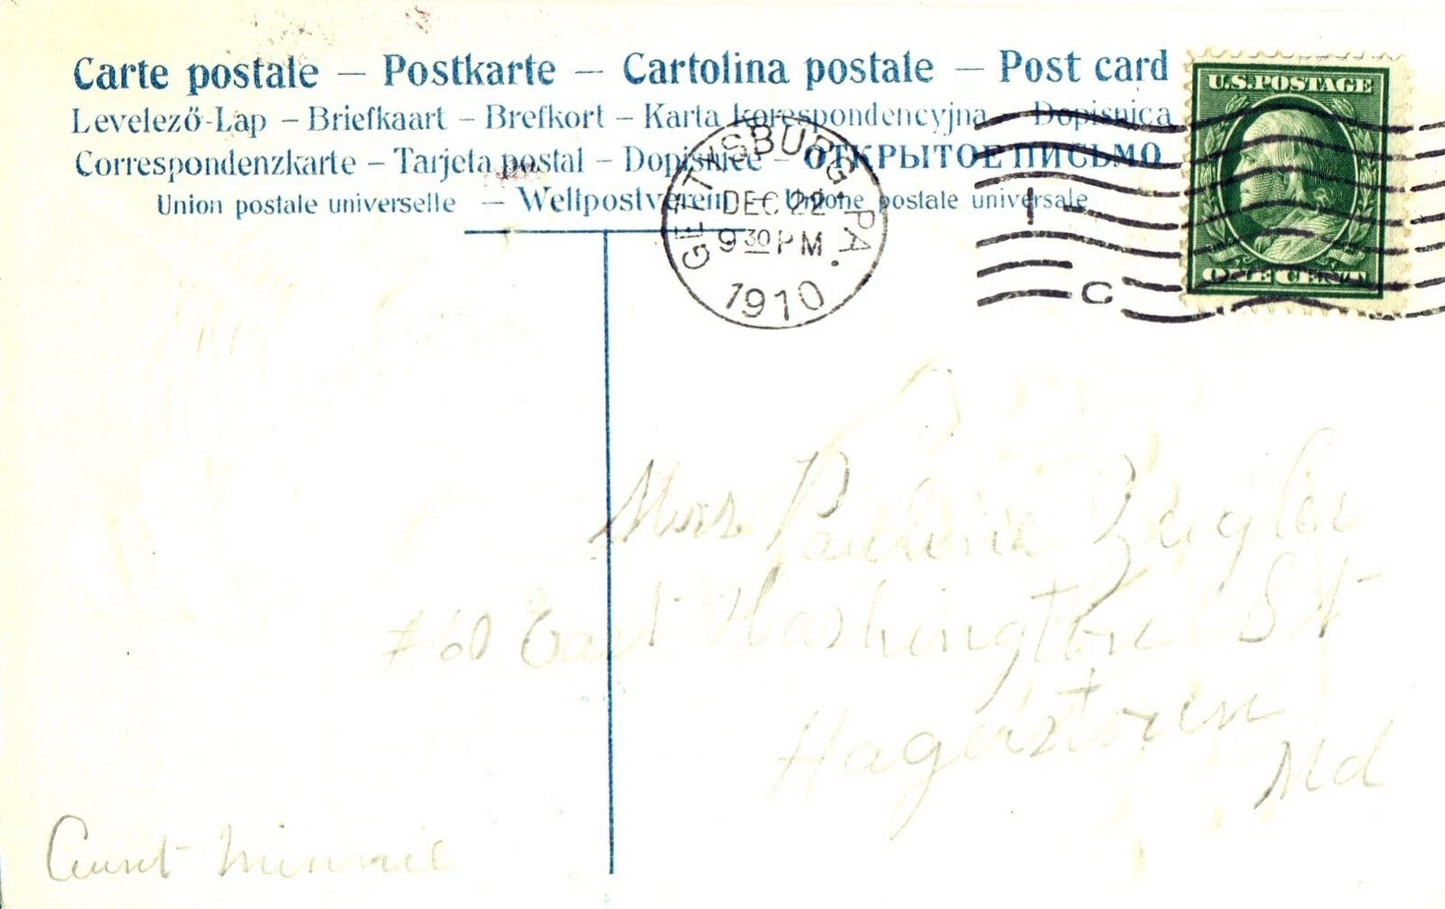 Carte postale — Postkarte — Cartolina postale — Post card
Levelező-Lap – Briefkaart – Brefkort – Karta korespondencyjna – Dopisnica
Correspondenzkarte – Tarjeta postal – Dopisnice – ОТКРЫТОЕ ПИСЬМО
Union postale universelle — Weltpostverein — Unione postale universale
U.S. POSTAGE
ONE CENT
GETTYSBURG PA.
DEC 22
9 30 PM
1910
1
C
Miss Pauline Zeigler
# 60 East Washington St
Hagerstown
Md
Aunt Minnie